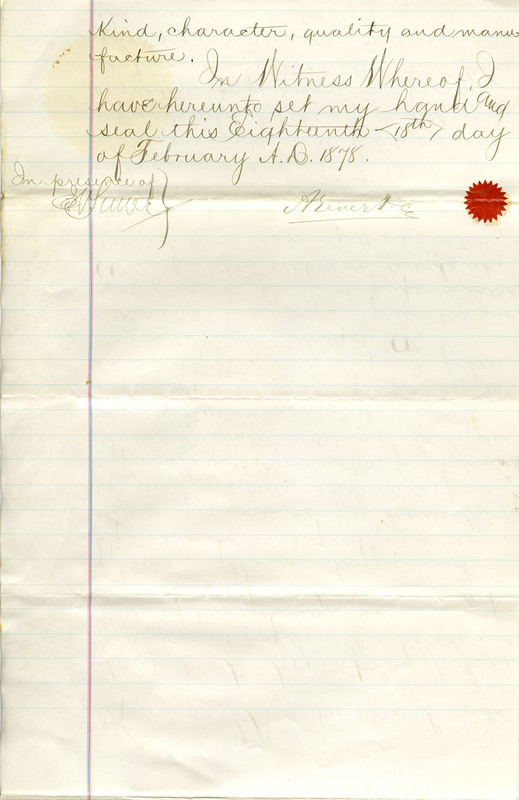 Kind, character, quality and manu
facture.
In Witness Whereof, I
have hereunto set my hand and
seal this Eighteenth <18th> day
of February A.D. 1878.
In presence of